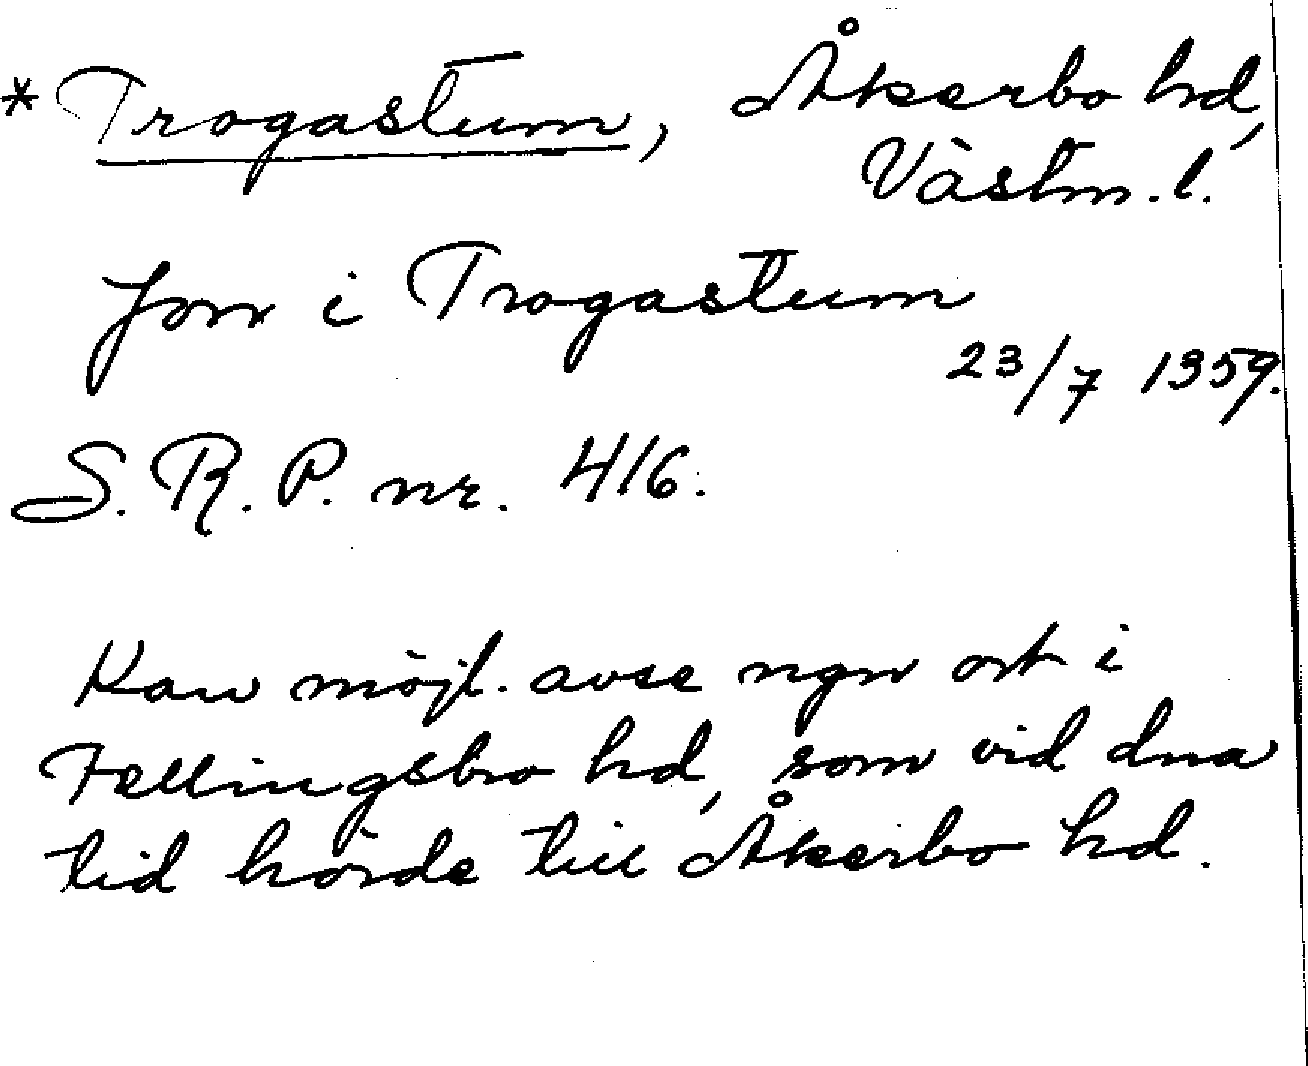 * Trogastum, Åkerbo hd,
Västm. l.
Jon i Trogastum
23/7 1359.
S. R. P. nr. 416.
Kan möjl. avse ngn ort i
Fellingsbro hd, som vid dna
tid hörde till Åkerbo hd.